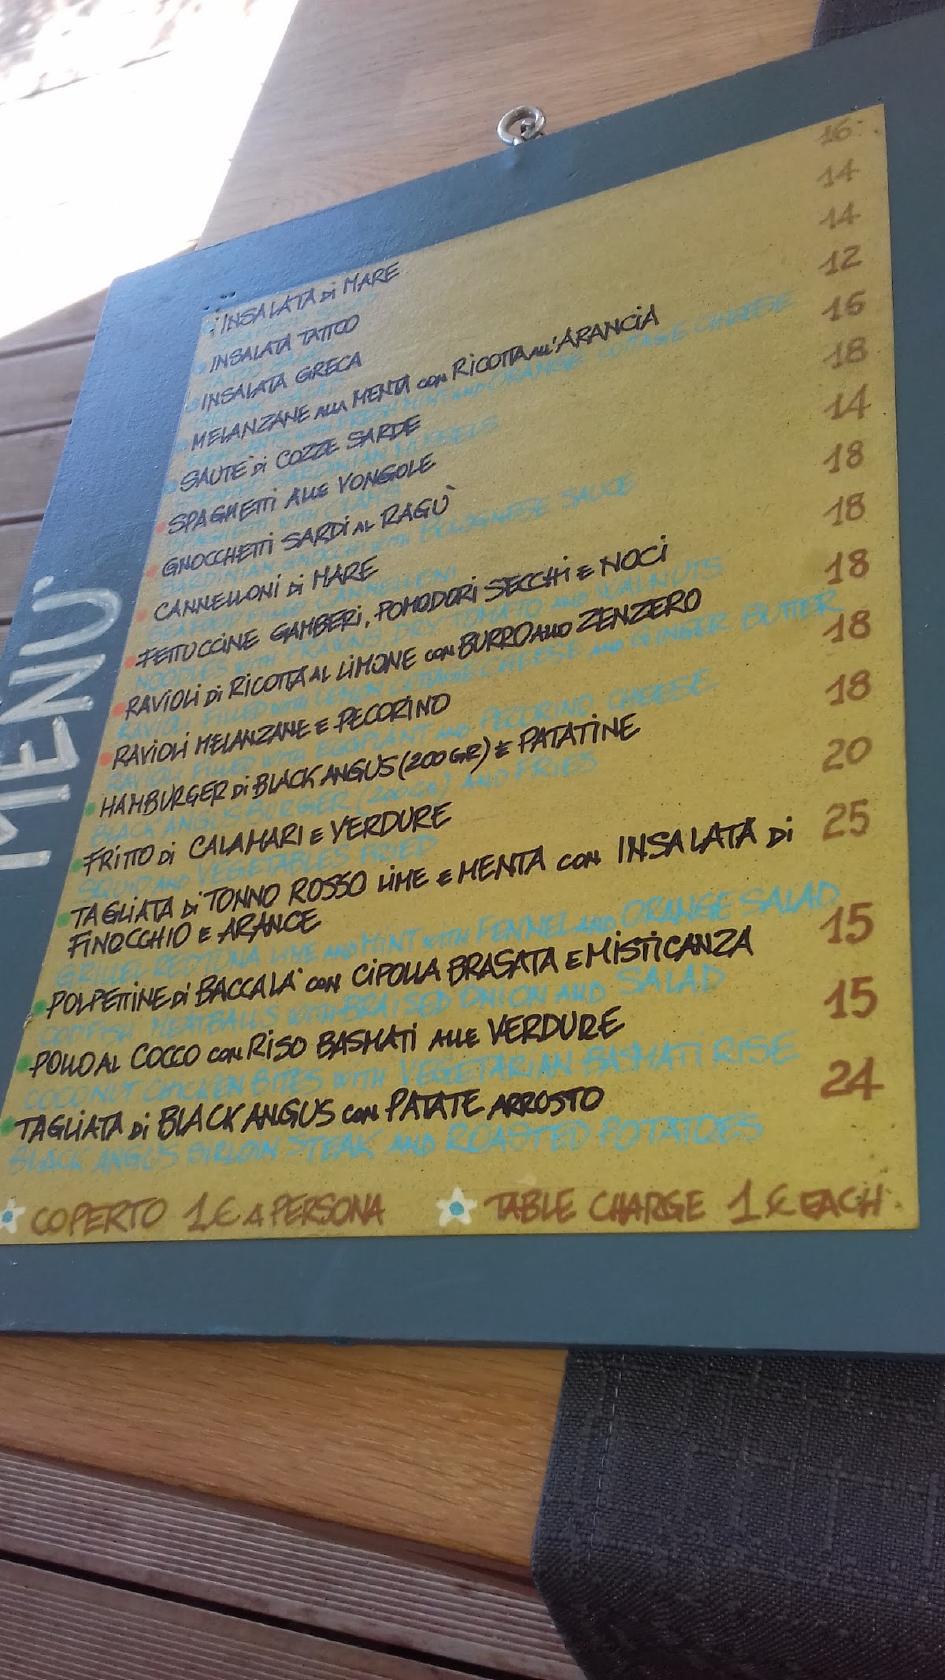 MENU'
INSALATA di MARE 16
INSALATA TATTOO 14
INSALATA GRECA 14
MELANZANE ALLA MENTA con RICOTTA all'ARANCIA 12
EGGPLANTS WITH FRESH MINT AND ORANGE COTTAGE CHEESE
SAUTE' di COZZE SARDE 16
SARDINIAN MUSSELS
SPAGHETTI ALLE VONGOLE 18
SPAGHETTI WITH CLAMS
GNOCCHETTI SARDI AL RAGU' 14
SARDINIAN GNOCCHI WITH BOLOGNESE SAUCE
CANNELLONI di MARE 18
SEAFOOD FILLED CANNELLONI
FETTUCCINE GAMBERI, POMODORI SECCHI E NOCI 18
NOODLES WITH PRAWNS, DRY TOMATO AND WALNUTS
RAVIOLI di RICOTTA AL LIMONE con BURRO ALLO ZENZERO 18
RAVIOLI FILLED WITH LEMON COTTAGE CHEESE AND GINGER BUTTER
RAVIOLI MELANZANE E PECORINO 18
RAVIOLI FILLED WITH EGGPLANT AND PECORINO CHEESE
HAMBURGER di BLACK ANGUS (200 GR) E PATATINE 18
BLACK ANGUS BURGER (200 GR) AND FRIES
FRITTO di CALAMARI E VERDURE 20
SQUID AND VEGETABLES FRIED
TAGLIATA di TONNO ROSSO LIME E MENTA con INSALATA di 25
FINOCCHIO E ARANCE
GRILLED RED TUNA LIME AND MINT WITH FENNEL AND ORANGE SALAD
POLPETTINE di BACCALA' con CIPOLLA BRASATA E MISTICANZA 15
CODFISH MEATBALLS WITH BRAISED ONION AND SALAD
POLLO AL COCCO con RISO BASMATI ALLE VERDURE 15
COCONUT CHICKEN BITES WITH VEGETARIAN BASMATI RISE
TAGLIATA di BLACK ANGUS con PATATE ARROSTO 24
BLACK ANGUS SIRLOIN STEAK AND ROASTED POTATOES
COPERTO 1€ A PERSONA TABLE CHARGE 1€ EACH